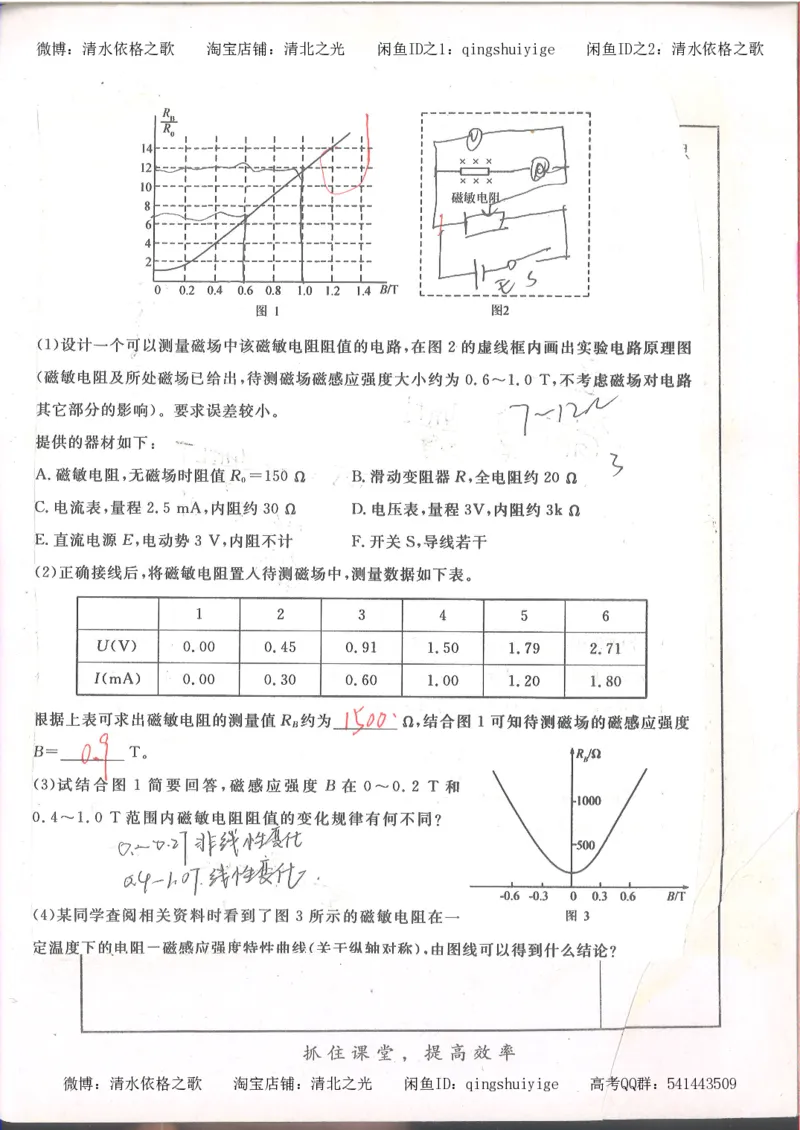 微博：清水依格之歌 淘宝店铺：清北之光 闲鱼ID之1：qingshuiyige 闲鱼ID之2：清水依格之歌
R_B/R₀
14
12
10
8
6
4
2
0 0.2 0.4 0.6 0.8 1.0 1.2 1.4 B/T
图 1
V
× × ×
× × ×
磁敏电阻
E S
图2
(1)设计一个可以测量磁场中该磁敏电阻阻值的电路,在图 2 的虚线框内画出实验电路原理图
(磁敏电阻及所处磁场已给出,待测磁场磁感应强度大小约为 0.6～1.0 T,不考虑磁场对电路
其它部分的影响)。要求误差较小。
7～12Ω
提供的器材如下:
3
A. 磁敏电阻,无磁场时阻值 R₀=150 Ω B. 滑动变阻器 R,全电阻约 20 Ω
C. 电流表,量程 2.5 mA,内阻约 30 Ω D. 电压表,量程 3V,内阻约 3k Ω
E. 直流电源 E,电动势 3 V,内阻不计 F. 开关 S,导线若干
(2)正确接线后,将磁敏电阻置入待测磁场中,测量数据如下表。
1 2 3 4 5 6
U(V) 0.00 0.45 0.91 1.50 1.79 2.71
I(mA) 0.00 0.30 0.60 1.00 1.20 1.80
根据上表可求出磁敏电阻的测量值 R_B约为 1500 Ω,结合图 1 可知待测磁场的磁感应强度
B= 0.9 T。
(3)试结合图 1 简要回答,磁感应强度 B 在 0～0.2 T 和
0.4～1.0 T 范围内磁敏电阻阻值的变化规律有何不同?
0.～0.2T 非线性变化
0.4～1.0T.线性变化.
R_B/Ω
1000
500
-0.6 -0.3 0 0.3 0.6 B/T
图 3
(4)某同学查阅相关资料时看到了图 3 所示的磁敏电阻在一
定温度下的电阻－磁感应强度特性曲线(关于纵轴对称),由图线可以得到什么结论?
抓住课堂，提高效率
微博：清水依格之歌 淘宝店铺：清北之光 闲鱼ID：qingshuiyige 高考QQ群：541443509